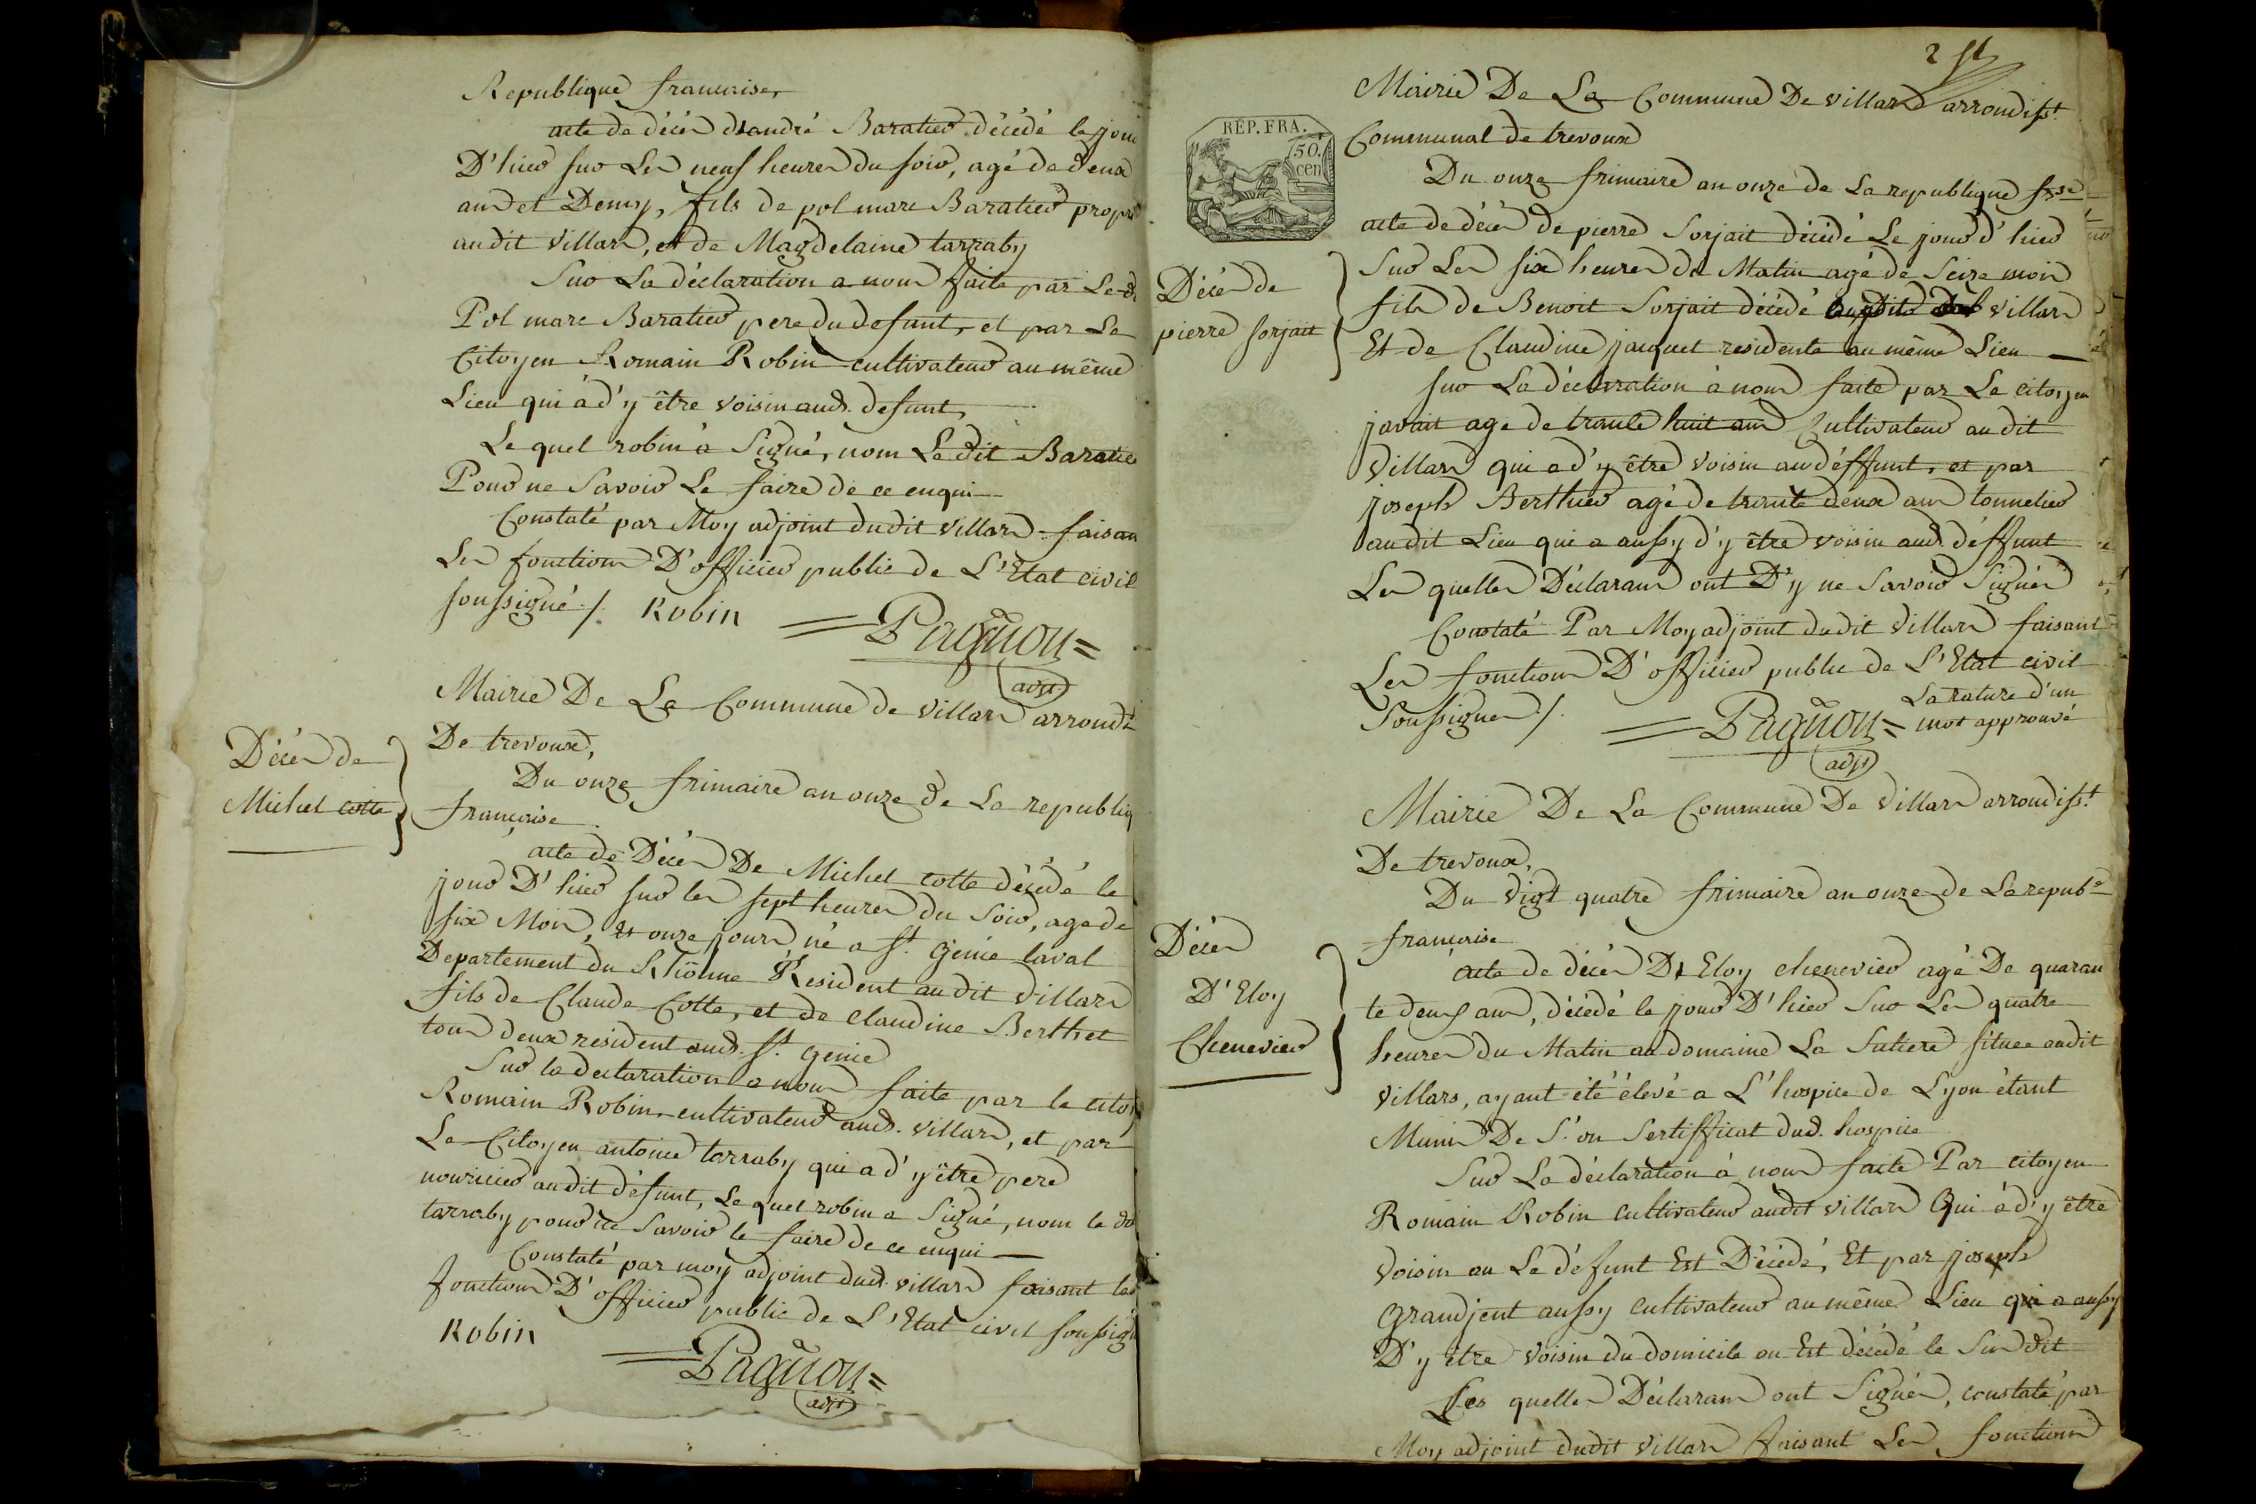 Republique francaise,
acte de décès d'andré Baratier décédé le jour
D'hier sur Les neuf heures du soir, agé de deux
ans et Demy, fils de pol marc Baratier propr
audit Villars, et de Magdelaine tarraby
Sur La déclaration a nous faite par Le d
Pol marc Baratier pere du defunt, et par Le
Citoyen Romain Robin cultivateur au même
Lieu qui à d'y être voisin aud. defunt,
Le quel robin à Signé, nom Le dit Baratier
Pour ne Savoir Le faire de ce enqui
Constaté par Moy adjoint dudit villars faisan
Les fonctions D'officier public de L'Etat civil
soussigné /. Robin
= Pagnon =
adjt
Mairie De La Commune de villars arrondt
De trevoux,
Décès de
Michel cotte
Du onze frimaire an onze de La republiq
francaise
acte de Décès De Michel cotte décédé le
jour D'hier sur les sept heures du Soir, age de
six Mois, et onze jours, né a St. Genie laval
Departement du Rhône Resident audit Villars
fils de Claude Cotte, et de Claudine Berthet
tous deux resident aud. St. Genie
Sur la declaration a nous faite par le citoy
Romain Robin, cultivateur aud. villars, et par
Le Citoyen antoine tarraby qui a d'y être pere
nouricier audit défunt, Le quel robin a Signé, nom le d
tarraby pour ne Savoir le faire de ce enqui
Constaté par moy adjoint dud. villars faisant les
fonctions D'officier public de L'Etat civil soussig
Robin
= Pagnon =
adjt
2
Mairie De La Commune De villars arrondisst.
Communal de trevoux
RÉP. FRA.
50.
cen
Du onze frimaire an onze de La republique fse
acte de décès de pierre Sorjait décédé Le jour d'hier
Décès de
pierre sorjait
Sur Les six heures du Matin agé de Seize mois
fils de Benoit Sorjait décédé villars
Et de Claudine jacquet residente au même Lieu
sur La déclaration à nous faite par Le citoyen
javait age de trante huit ans Cultivateur audit
Villars qui a d'y être Voisin au déffunt, et par
joseph Berthier agé de trante deux ans tonnelier
audit Lieu qui a aussy d'y être voisin aud. déffunt
Les quelles Déclarans ont D'y ne Savoir Signés
Constaté Par Moy adjoint dudit villars faisant
Les fonctions D'officier public de L'Etat civil
Soussignes /.
= Pagnon =
adjt
La rature d'un
mot approuvé
Mairie De La Commune De Villars arrondisst.
De trevoux,
Du Vigt quatre frimaire an onze de La repube
francaise
Décès
D'Eloy
Chenevier
acte de décès D'Eloy chenevier agé De quaran
te deux ans, décédé le jour D'hier Sur Les quatre
heures du Matin au domaine La Sutiere situee audit
Villars, ayant été élevé a L'hospice de Lyon étant
Munis De S. on Sertifficat dud. hospice
Sur La déclaration à nous faite Par citoyen
Romain Robin cultivateur audit villars Qui à d'y être
Voisin ou Le défunt Est Décédé, Et par joseph
Grandjent aussy cultivateur au même Lieu qui a aussy
D'y être Voisin du domicile ou Est décédé le Susdit
Les quelles Déclarans ont Signés, constaté par
Moy adjoint dudit villars faisant Les fonctions